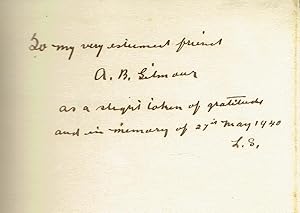 To my very esteemed friend
A. B. Gilmour
as a slight token of gratitude
and in memory of 27th May 1940
L. S.